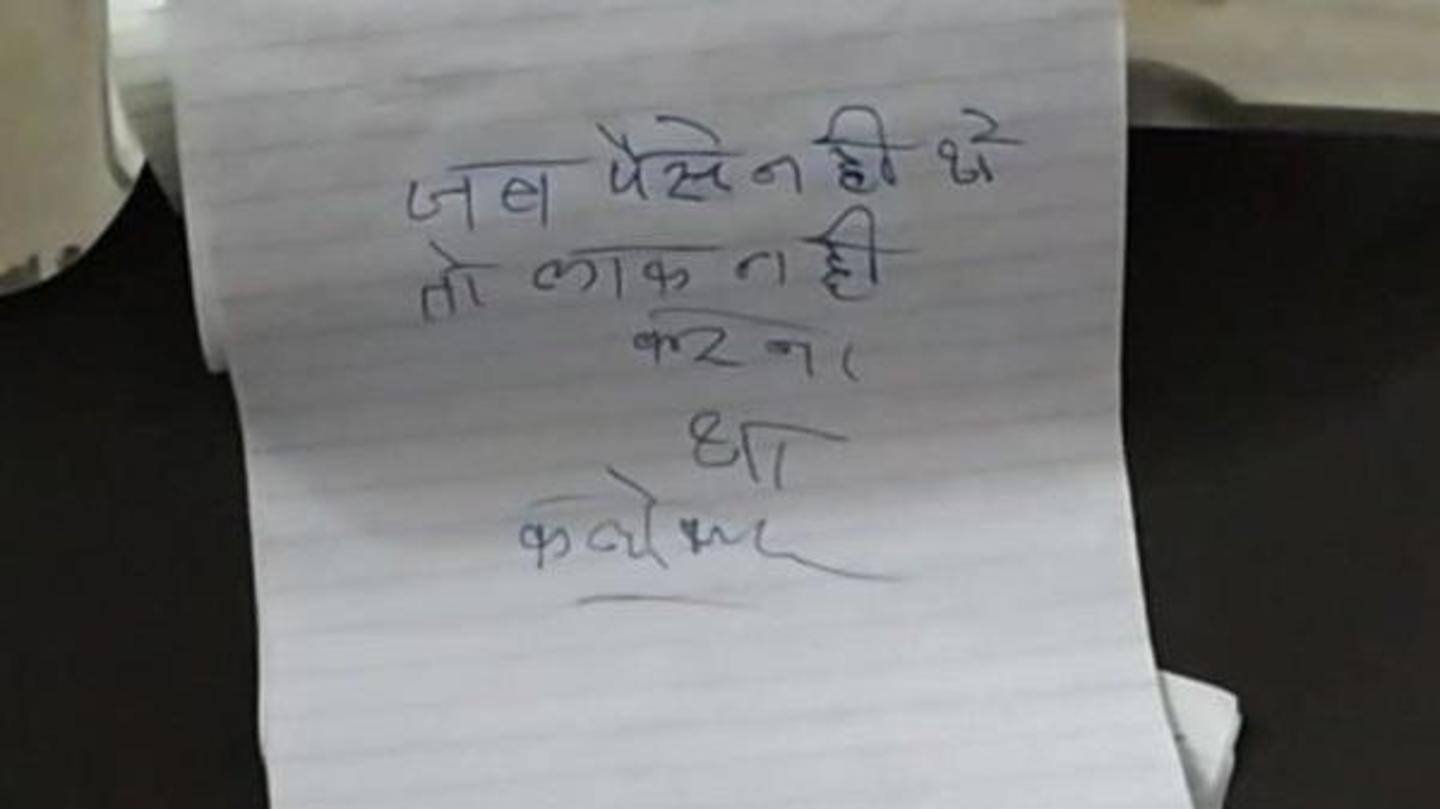 जब पैसे नही थे
तो लाक नही
करना
था
कलेक्टर